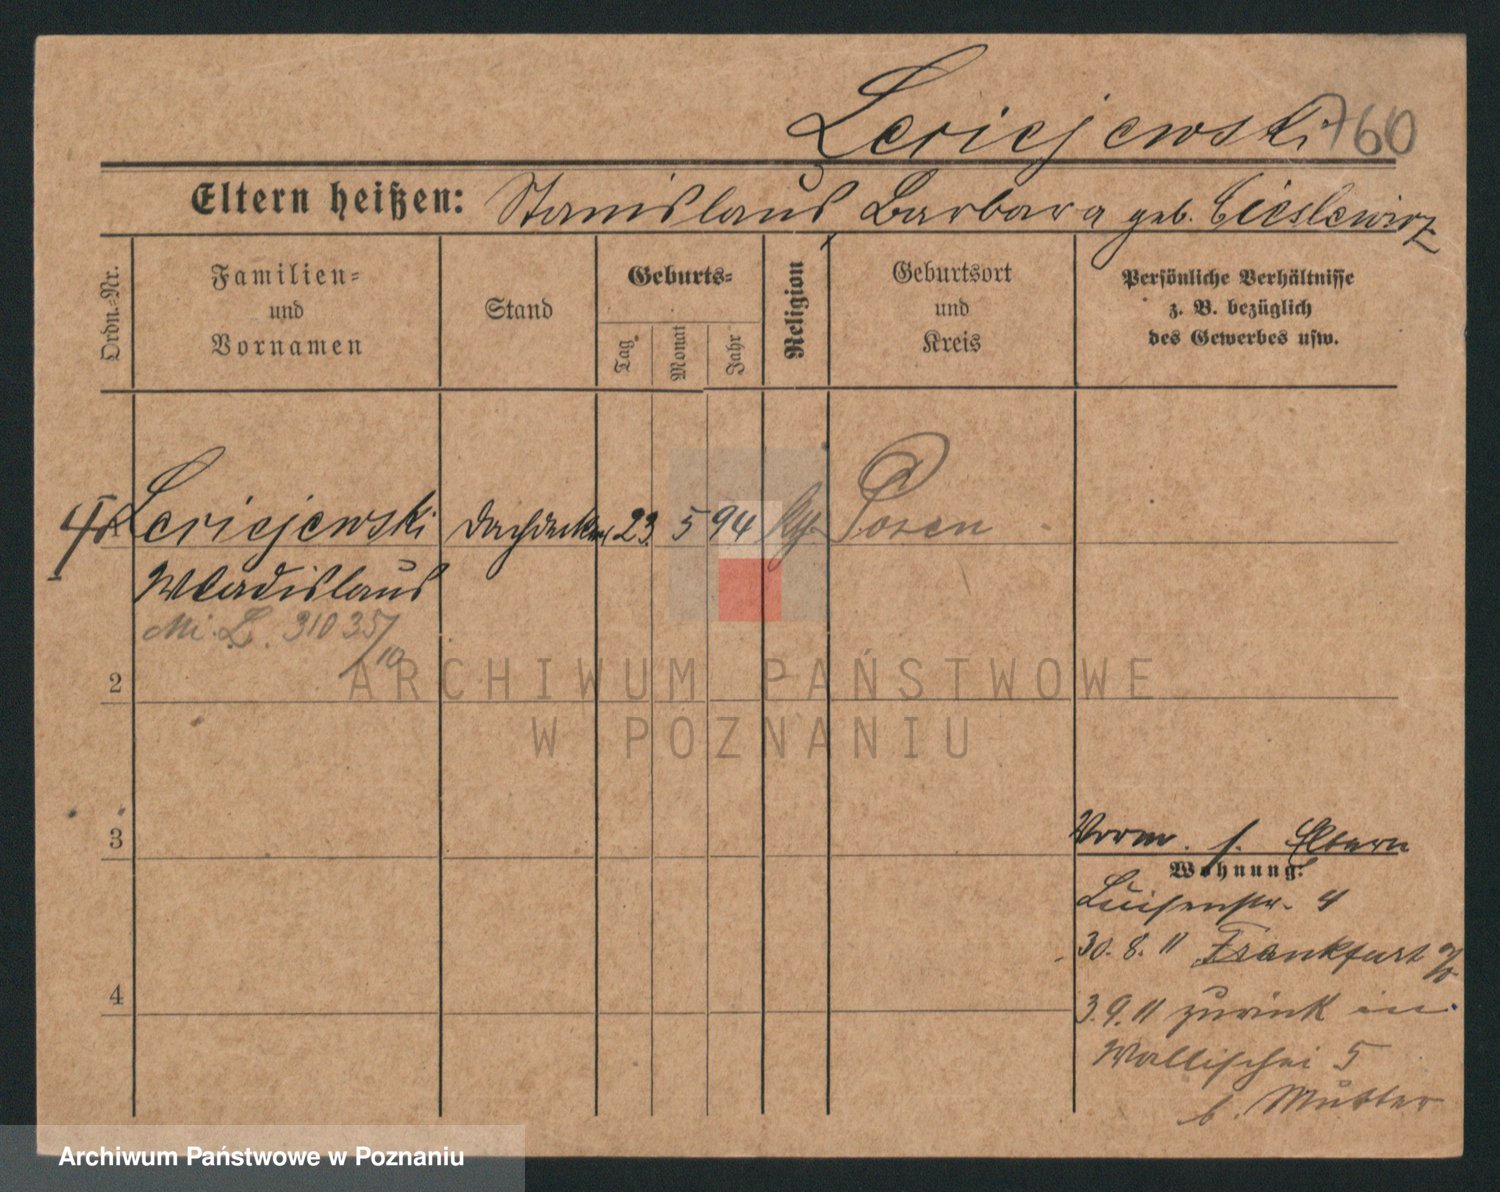 Leriejewski 760
Eltern heißen: Stanislaus, Barbara geb. Cieslewicz
Ordn.-Nr.
Familien-
und
Vornamen
Stand
Geburts-
Tag
Monat
Jahr
Religion
Geburtsort
und
Kreis
Persönliche Verhältnisse
z. B. bezüglich
des Gewerbes usw.
Leriejewski Dachdecker 23. 5 94 kth. Posen
Wladislaus
Mi. L. 310 35/10
2
3
4
Vorm. s. Eltern
Wohnung:
Luisenstr. 4
30. 8. 11 Frankfurt a/O
3. 9. 11 zurück in
Wallischei 5
b. Mutter
ARCHIWUM PAŃSTWOWE
W POZNANIU
Archiwum Państwowe w Poznaniu